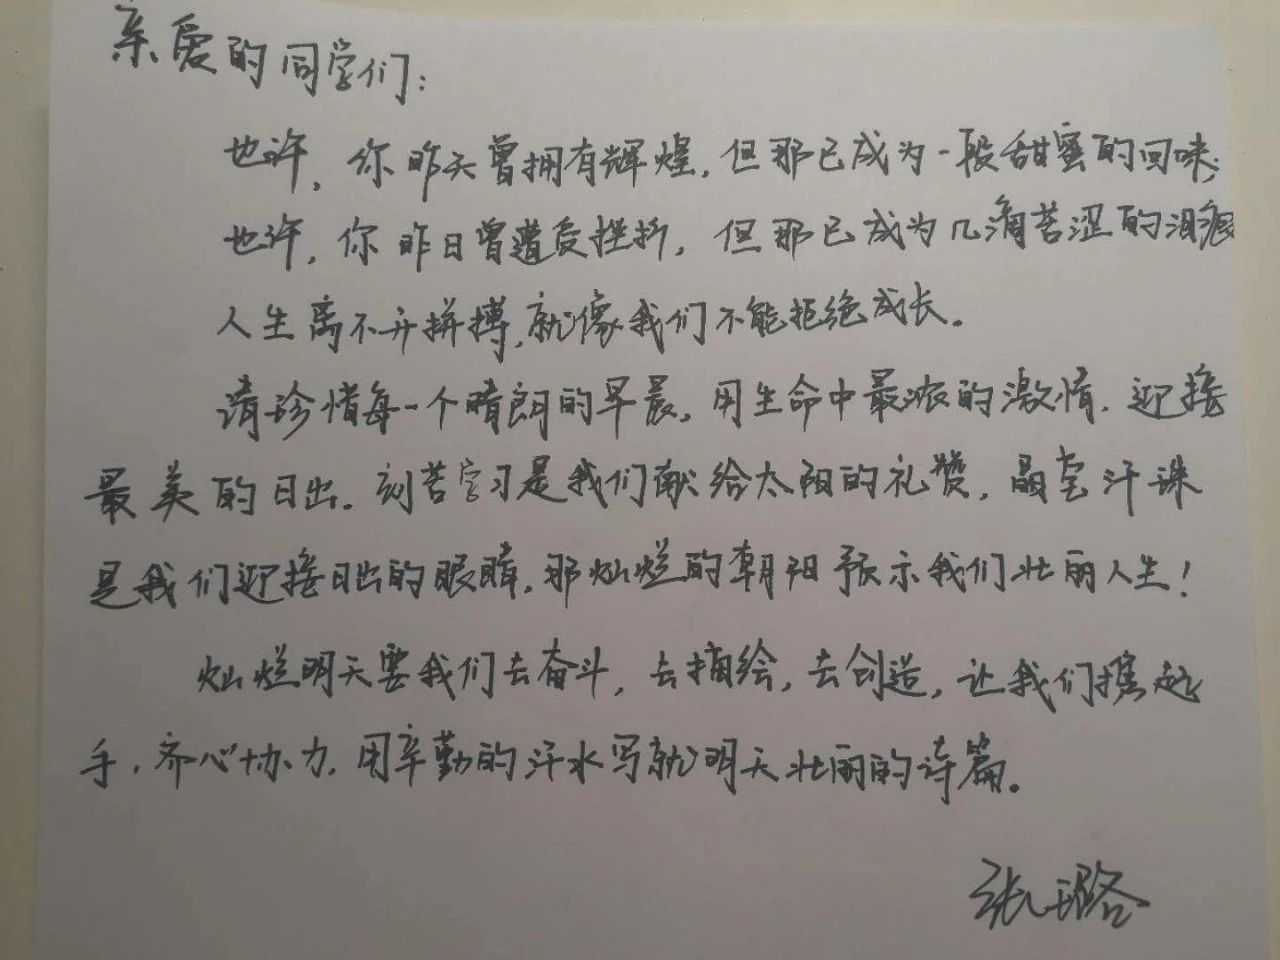 亲爱的同学们：
也许，你昨天曾拥有辉煌，但那已成为一段甜蜜的回味；
也许，你昨日曾遭受挫折，但那已成为几滴苦涩的泪痕
人生离不开拼搏，就像我们不能拒绝成长。
请珍惜每一个晴朗的早晨，用生命中最浓的激情，迎接
最美的日出。刻苦学习是我们献给太阳的礼赞，晶莹汗珠
是我们迎接日出的眼睛，那灿烂的朝阳预示我们壮丽人生！
灿烂明天要我们去奋斗，去描绘，去创造，让我们携起
手，齐心协力，用辛勤的汗水写就明天壮丽的诗篇。
张璐